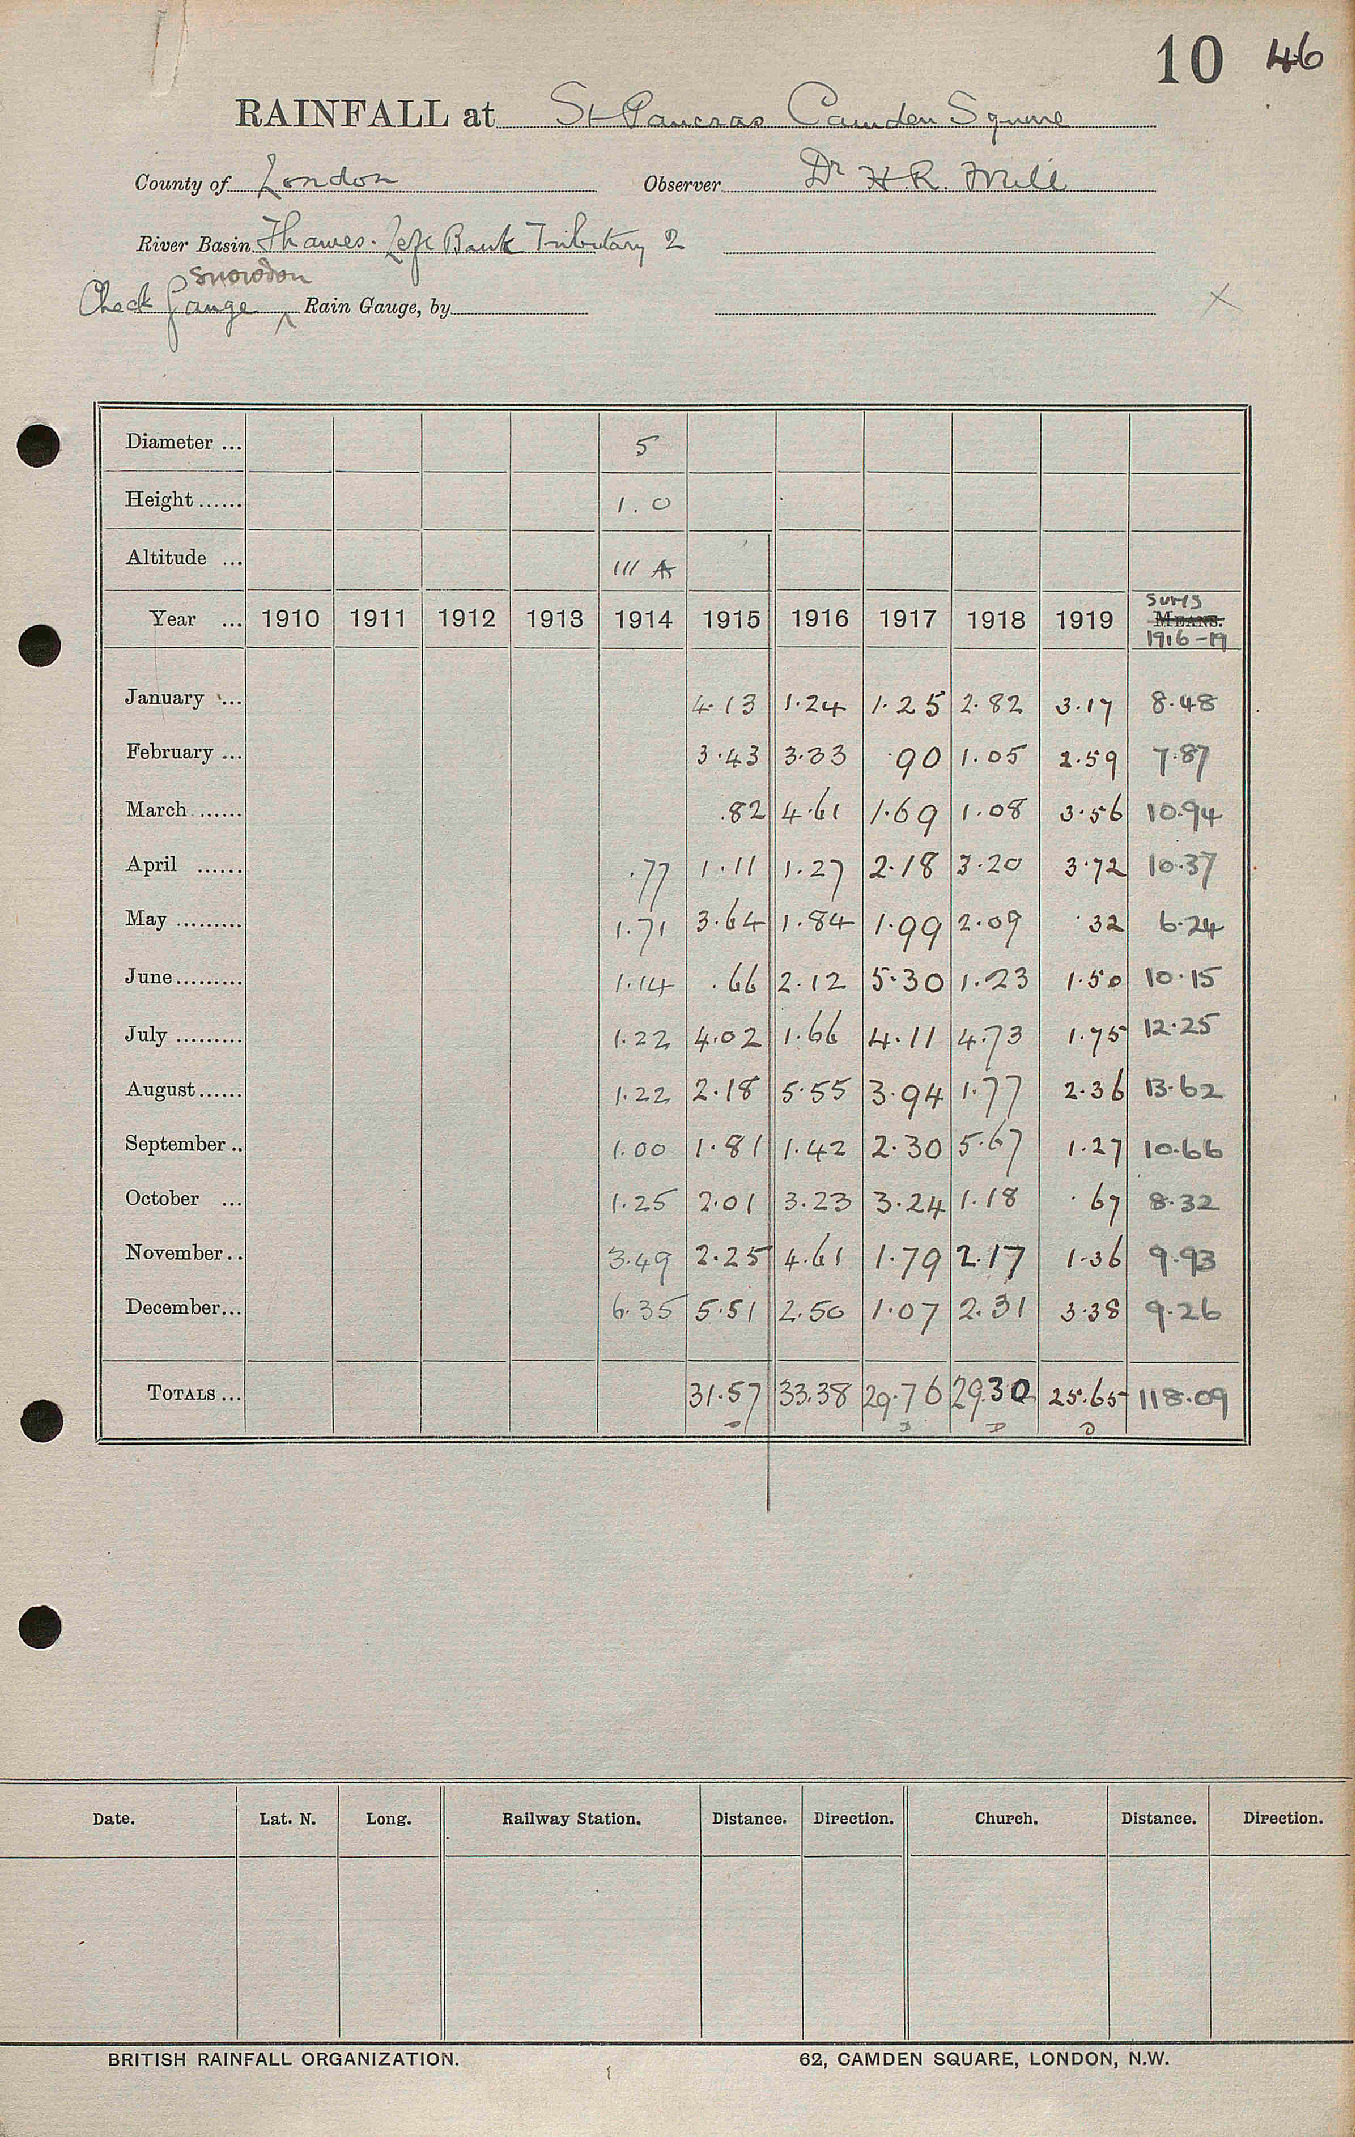 10 46
RAINFALL at St Pancras Camden Square
County of London Observer Dr H.R. Mill
River Basin Thames. Left Bank Tributary 2
Snowdon
Check Gauge ^ Rain Gauge, by X
Diameter ... 5
Height ...... 1.0
Altitude ... 111 A
Year ... 1910 1911 1912 1913 1914 1915 1916 1917 1918 1919 SUMS MEANS. 1916-19
January ... 4.13 1.24 1.25 2.82 3.17 8.48
February ... 3.43 3.33 .90 1.05 2.59 7.87
March ...... .82 4.61 1.69 1.08 3.56 10.94
April ...... .77 1.11 1.27 2.18 3.20 3.72 10.37
May ......... 1.71 3.64 1.84 1.99 2.09 .32 6.24
June......... 1.14 .66 2.12 5.30 1.23 1.50 10.15
July ......... 1.22 4.02 1.66 4.11 4.73 1.75 12.25
August...... 1.22 2.18 5.55 3.94 1.77 2.36 13.62
September.. 1.00 1.81 1.42 2.30 5.67 1.27 10.66
October ... 1.25 2.01 3.23 3.24 1.18 .67 8.32
November.. 3.49 2.25 4.61 1.79 2.17 1.36 9.93
December... 6.35 5.51 2.50 1.07 2.31 3.38 9.26
TOTALS ... 31.57 33.38 29.76 29.30 25.65 118.09
Date. Lat. N. Long. Railway Station. Distance. Direction. Church. Distance. Direction.
BRITISH RAINFALL ORGANIZATION. 62, CAMDEN SQUARE, LONDON, N.W.